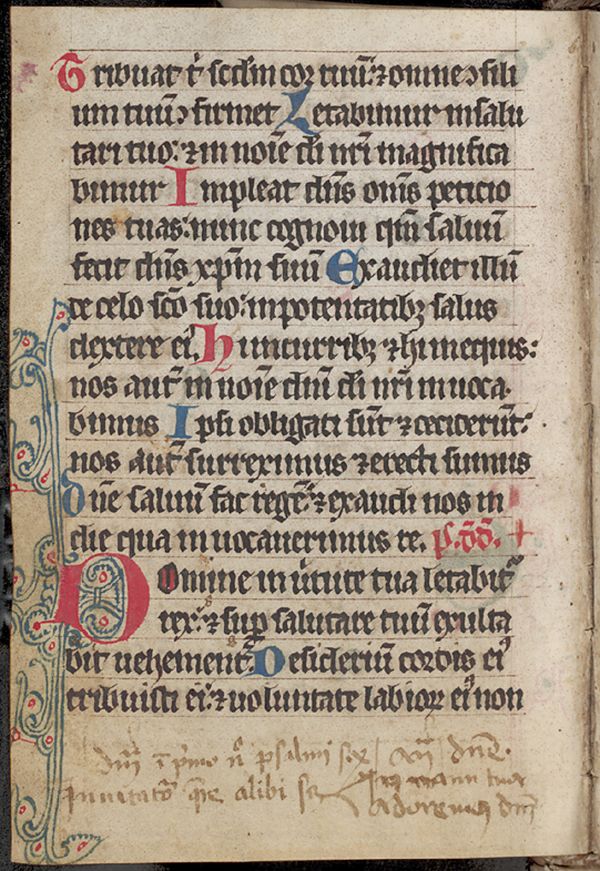 Tribuat t̄ scd̄m cor tuū: ⁊ omne ɔsili
um tuū ɔfirmet Letabimur in salu
tari tuo: ⁊ in noīe dī nrī magnifica
bimur Impleat dn̄s om̄s peticio
nes tuas: nunc cognoui qm̄ saluū
fecit dn̄s xp̄m suū Exaudiet illū
de celo sc̄o suo: in potentatibꝫ salus
dextere eiꝰ. Hii in curribꝫ ⁊ hii in equis:
nos aut̄ in noīe dn̄i dī nrī inuoca-
bimus Ipsi obligati sūt ⁊ ceciderūt:
nos aut̄ surreximus ⁊ erecti sumus
Dn̄e saluū fac regē: ⁊ exaudi nos in
die qua inuocauerimus te. p̄. dd̄. +
Domine in ū̄tute tua letabit᷑
rex: ⁊ sup̄ salutare tuū exulta
bit uehement᷑ Desideriū cordis eiꝰ
tribuisti ei: ⁊ uoluntate labioꝝ eiꝰ non
psalmi sex an̄ dn̄e.
alibi In manu tua
adoremus dn̄